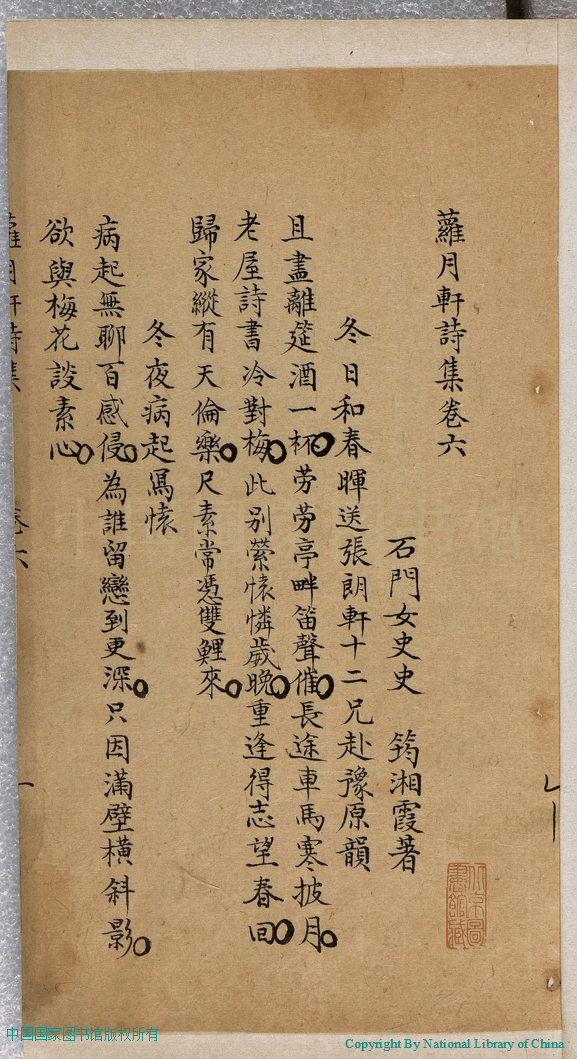 蘿月軒詩集卷六
石門女史史 筠湘霞著
冬日和春暉送張朗軒十二兄赴豫原韻
且盡離筵酒一杯勞勞亭畔笛聲催長途車馬寒披月
老屋詩書冷對梅此別縈懷憐歲晚重逢得志望春回
歸家縱有天倫樂尺素常憑雙鯉來
冬夜病起寫懷
病起無聊百感侵為誰留戀到更深只因滿壁橫斜影
欲與梅花談素心
蘿月軒詩集 卷六 一
北京圖書館藏
中国国家图书馆版权所有
Copyright By National Library of China